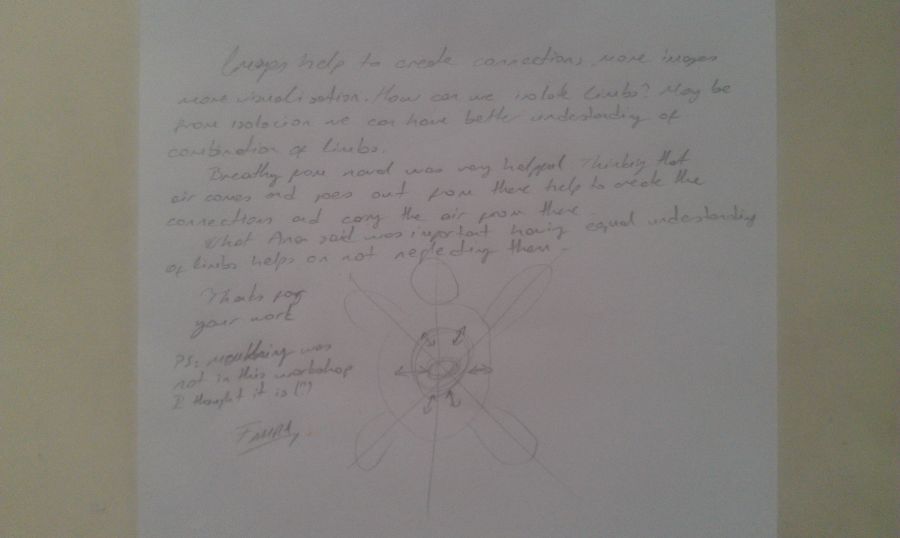 help to create connections, more images
more visualisation. How can we isolate limbs? May be
from isolacion we can have better understanding of
combination of limbs.
Breathy from navel was very helpful. Thinking that
air comes and goes out from there help to create the
connections and carry the air from there.
What Ana said was important having equal understanding
of limbs helps on not neglecting them.
Thanks for
your work
PS: was
not in this workshop
I thought it is (!)